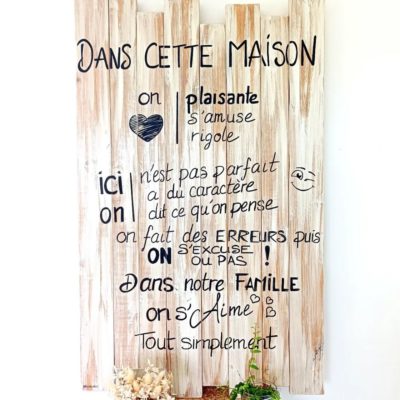 DANS CETTE MAISON
on plaisante
s'amuse
rigole
ici n'est pas parfait
on a du caractère
dit ce qu'on pense
on fait des ERREURS puis
ON S'EXCUSE
OU PAS !
Dans notre FAMILLE
on s'Aime
Tout simplement